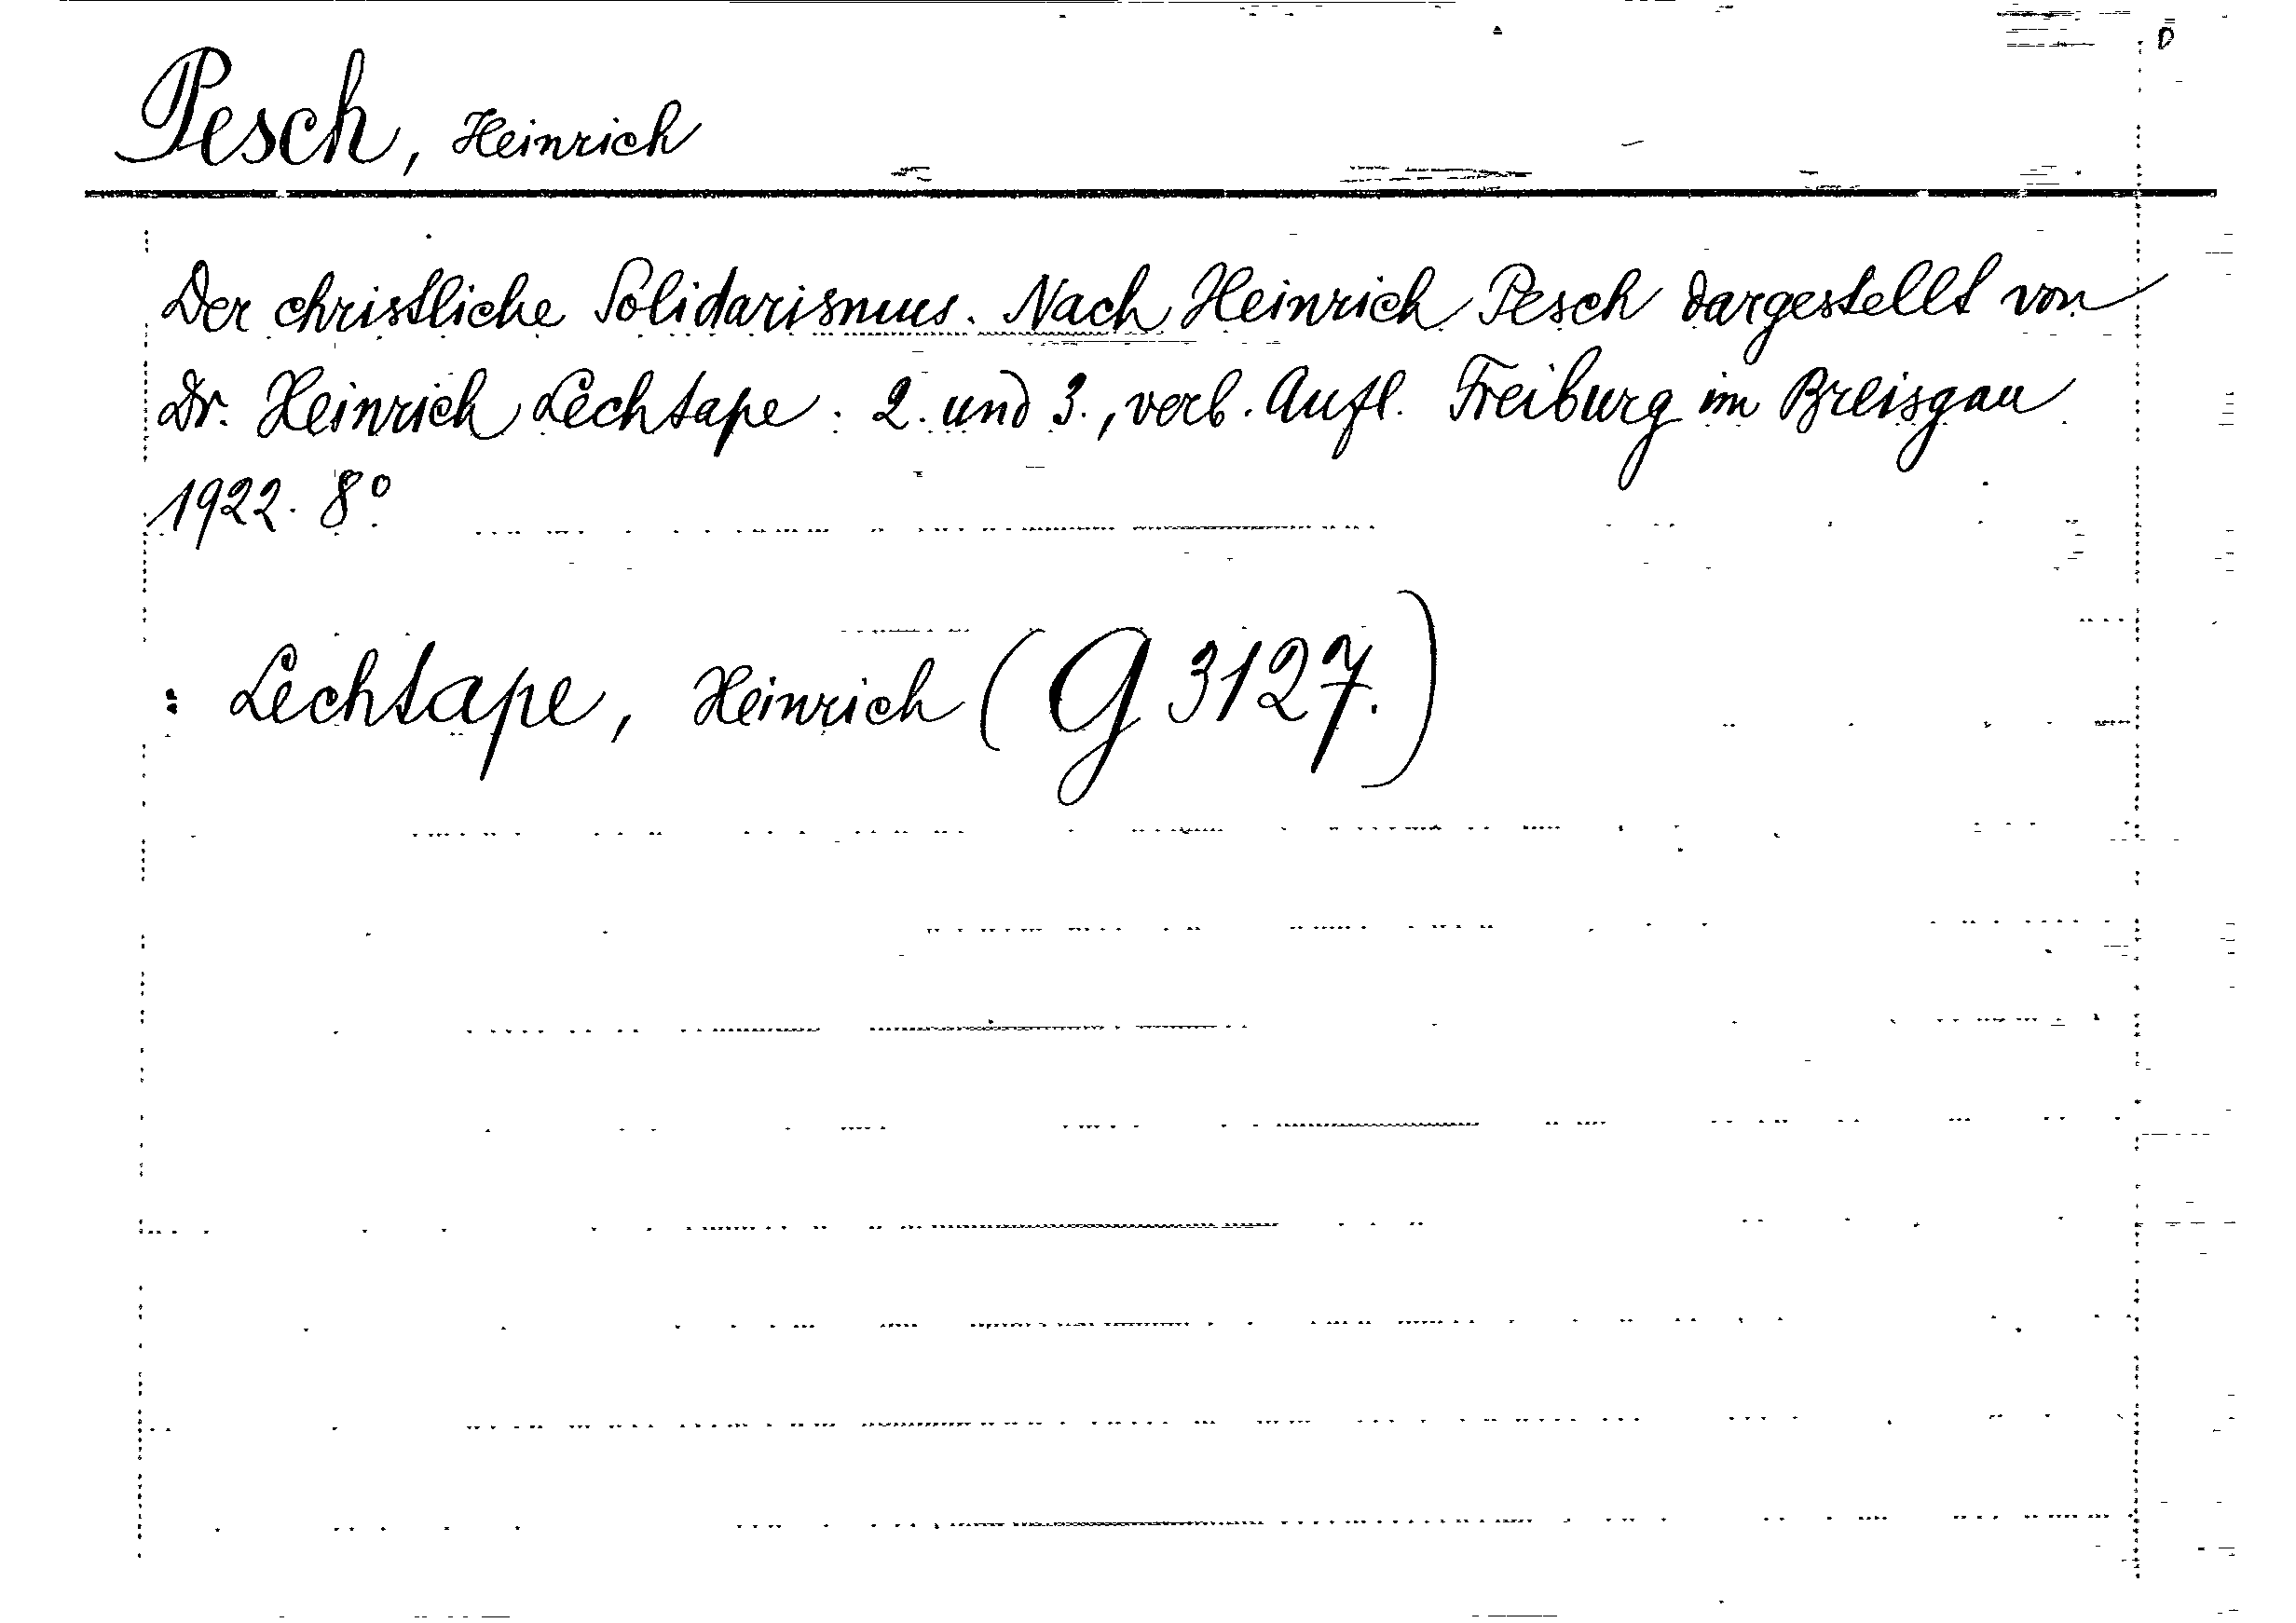 Pesch, Heinrich
Der christliche Solidarismus. Nach Heinrich Pesch dargestellt von
Dr. Heinrich Lechtape. 2. und 3., verb. Aufl. Freiburg im Breisgau
1922. 8°
: Lechtape, Heinrich (G 3127.)